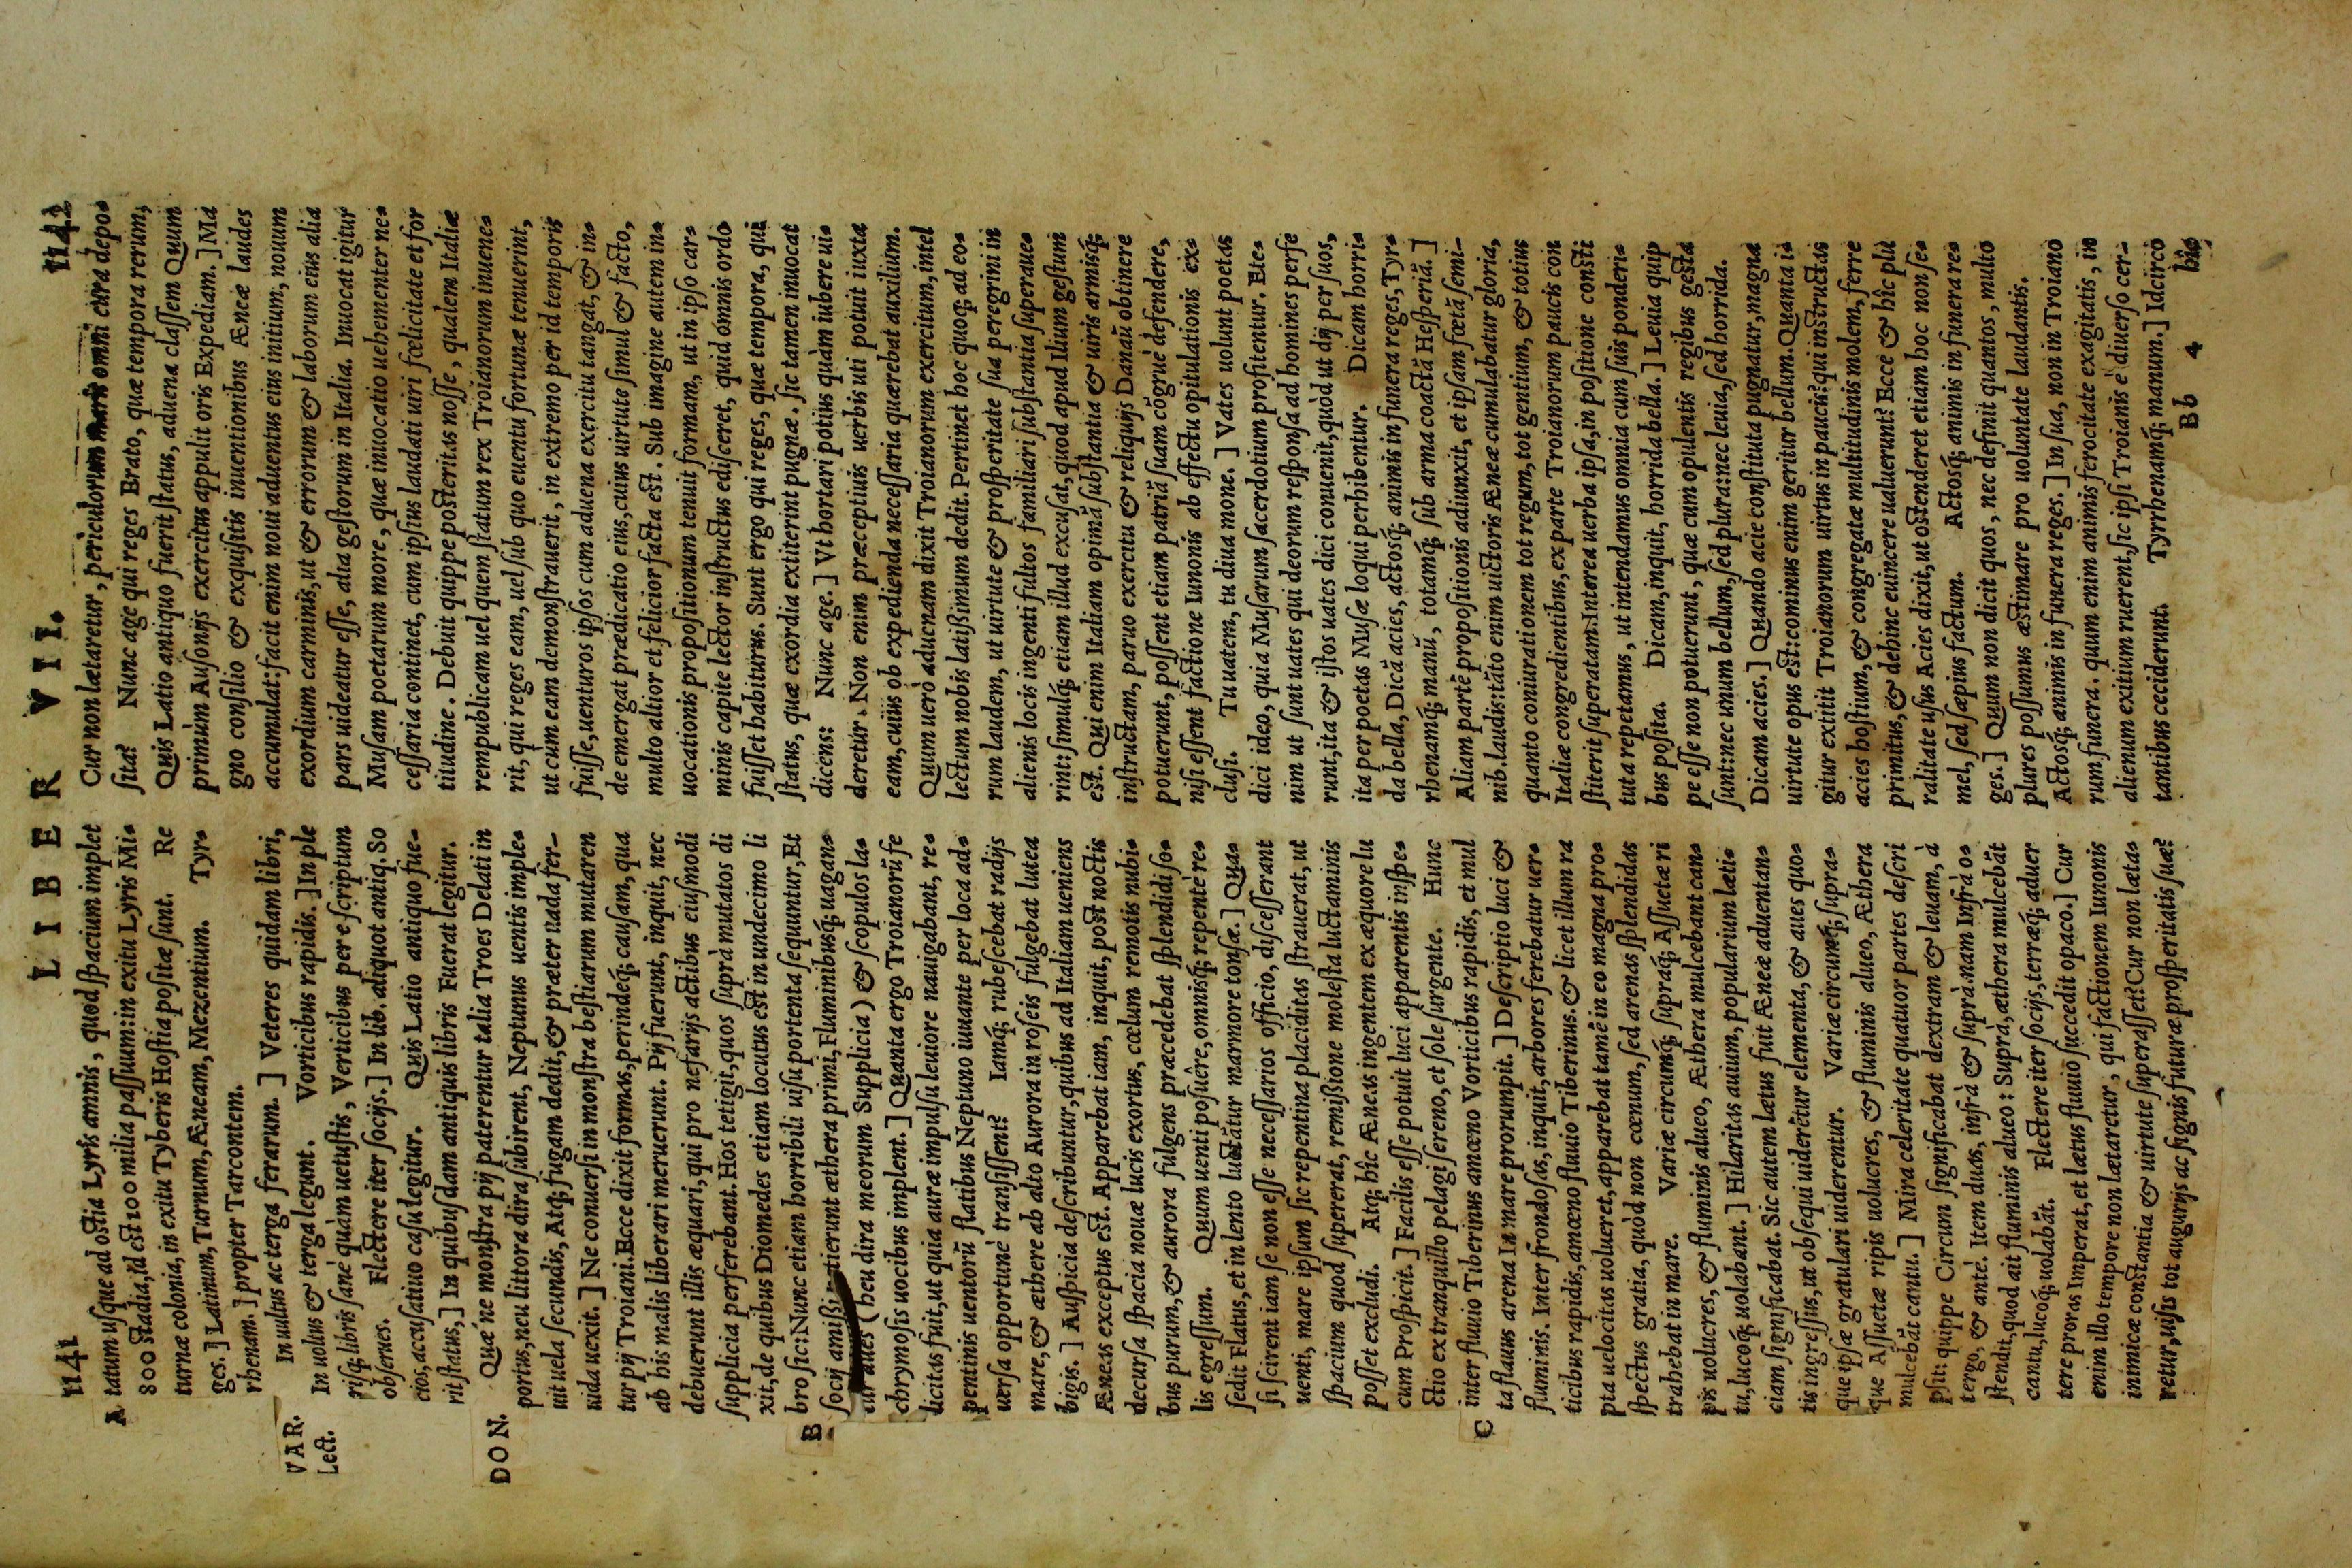 LIBER VII.
1141
1142
A
tatum usque ad ostia Lyris amnis, quod spacium implet
800 stadia, id est 100 milia passuum: in exitu Lyris Mi-
turnæ colonia, in exitu Tyberis Hostia positæ sunt. Re
ges.] Latinum, Turnum, Æneam, Mezentium. Tyr-
rhenam.] propter Tarcontem.
VAR.
Lect.
In uultus ac terga ferarum.] Veteres quidam libri,
In uoltus & terga legunt. Vorticibus rapidis.] In ple
risq; libris sanè quàm uetustis, Verticibus per e scriptum
obserues. Flectere iter socijs.] In lib. aliquot antiq. So
cios, accusatiuo casu legitur. Quis Latio antiquo fue-
rit status,] In quibusdam antiquis libris Fuerat legitur.
DON.
Quæ ne monstra pij paterentur talia Troes Delati in
portus, neu littora dira subirent, Neptunus uentis imple-
uit uela secundis, Atq; fugam dedit, & præter uada fer-
uida uexit.] Ne conuersi in monstra bestiarum mutaren
tur pij Troiani. Ecce dixit formas, perindeq; causam, qua
ab his malis liberari meruerunt. Pij fuerunt, inquit, nec
debuerunt illis æquari, qui pro nefarijs actibus eiusmodi
supplicia perferebant. Hos tetigit, quos suprà mutatos di
xit, de quibus Diomedes etiam locutus est in undecimo li
bro sic: Nunc etiam horribili uisu portenta sequuntur, Et
B
socij amissi petierunt æthera primi, Fluminibusq; uagan-
tur aues (heu dira meorum Supplicia) & scopulos la-
chrymosis uocibus implent.] Quanta ergo Troianorũ fe
licitas fuit, ut quia auræ impulsu leuiore nauigabant, re-
pentinis uentorũ flatibus Neptuno iuuante per loca ad-
uersa opportunè transissent? Iamq; rubescebat radijs
mare, & æthere ab alto Aurora in roseis fulgebat lutea
bigis.] Auspicia describuntur, quibus ad Italiam ueniens
Æneas exceptus est. Apparebat iam, inquit, post noctis
decursa spacia nouæ lucis exortus, cælum remotis nubi-
bus purum, & aurora fulgens præcedebat splendidi so-
lis egressum. Quum uenti posuêre, omnisq; repentè re-
sedit Flatus, et in lento luctãtur marmore tonsæ.] Qua-
si scirent iam se non esse necessarios officio, discesserant
uenti, mare ipsum sic repentina placiditas strauerat, ut
spacium quod supererat, remissione molesta luctaminis
posset excludi. Atq; hîc Æneas ingentem ex æquore lu
cum Prospicit.] Facilis esse potuit luci apparentis inspe-
ctio ex tranquillo pelagi sereno, et sole surgente. Hunc
C
inter fluuio Tiberinus amœno Vorticibus rapidis, et mul
ta flauus arena In mare prorumpit.] Descriptio luci &
fluminis. Inter frondosas, inquit, arbores ferebatur uer-
ticibus rapidis, amœno fluuio Tiberinus. & licet illum ra
pta uelocitas uolueret, apparebat tamẽ in eo magna pro-
spectus gratia, quòd non cœnum, sed arenas splendidas
trahebat in mare. Variæ circumq; supraq; Assuetæ ri
pis uolucres, & fluminis alueo, Æthera mulcebant can-
tu, lucoq; uolabant.] Hilaritas auium, popularium læti-
ciam significabat. Sic autem lætus fuit Æneæ aduentan-
tis ingressus, ut obsequi uiderẽtur elementa, & aues quo-
que ipsæ gratulari uiderentur. Variæ circumq; supra-
que Assuetæ ripis uolucres, & fluminis alueo, Æthera
mulcebãt cantu.] Mira celeritate quatuor partes descri
psit: quippe Circum significabat dextram & leuam, à
tergo, & antè. Item duas, infrà & suprà: nam Infrà o-
stendit, quod ait fluminis alueo: Suprà, æthera mulcebãt
cantu, lucoq; uolabãt. Flectere iter socijs, terræq; aduer
tere proras Imperat, et lætus fluuio succedit opaco.] Cur
enim illo tempore non lætaretur, qui factionem Iunonis
inimicæ constantia & uirtute superasset? Cur non læta-
retur, uisis tot augurijs ac signis futuræ prosperitatis suæ?
Cur non lætaretur, periculorum maris omni cura depo-
sita? Nunc age qui reges Erato, quæ tempora rerum,
Quis Latio antiquo fuerit status, aduena classem Quum
primùm Ausonijs exercitus appulit oris Expediam.] Ma
gno consilio & exquisitis inuentionibus Æneæ laudes
accumulat: facit enim noui aduentus eius initium, nouum
exordium carminis, ut & errorum & laborum eius alia
pars uideatur esse, alia gestorum in Italia. Inuocat igitur
Musam poetarum more, quæ inuocatio uehementer ne-
cessaria continet, cum ipsius laudati uiri fœlicitate et for
titudine. Debuit quippe posteritas nosse, qualem Italiæ
rempublicam uel quem statum rex Troianorum inuene-
rit, qui reges eam, uel sub quo euentu fortunæ tenuerint,
ut cùm eam demonstrauerit, in extremo per id temporis
fuisse, uenturos ipsos cum aduena exercitu tangat, & in-
de emergat prædicatio eius, cuius uirtute simul & facto,
multo altior et felicior facta est. Sub imagine autem in-
uocationis propositionum tenuit formam, ut in ipso car-
minis capite lector instructus edisceret, quid omnis ordo
fuisset habiturus. Sunt ergo qui reges, quæ tempora, qui
status, quæ exordia extiterint pugnæ. sic tamen inuocat
dicens: Nunc age.] Vt hortari potius quàm iubere ui-
deretur. Non enim præceptiuis uerbis uti potuit iuxta
eam, cuius ob expedienda necessaria quærebat auxilium.
Quum uerò aduenam dixit Troianorum exercitum, intel
lectum nobis latissimum dedit. Pertinet hoc quoq; ad eo-
rum laudem, ut uirtute & prosperitate sua peregrini in
alienis locis ingenti fultos familiari substantia superaue-
rint: simulq; etiam illud excusat, quod apud Ilium gestum
est. Qui enim Italiam opimã substantia & uiris armisq;
instructam, paruo exercitu & reliquijs Danaũ obtinere
potuerunt, possent etiam patriã suam cõgruè defendere,
nisi essent factione Iunonis ab effectu opitulationis ex-
clusi. Tu uatem, tu diua mone.] Vates uolunt poetas
dici ideo, quia Musarum sacerdotium profitentur. Ete-
nim ut sunt uates qui deorum responsa ad homines perfe
runt, ita & istos uates dici conuenit, quòd ut dij per suos,
ita per poetas Musæ loqui perhibentur. Dicam horri-
da bella, Dicã acies, actosq; animis in funera reges, Tyr-
rhenamq; manũ, totamq; sub arma coactã Hesperiã.]
Aliam partẽ propositionis adiunxit, et ipsam fœtã semi-
nib. laudis: tãto enim uictoris Æneæ cumulabatur gloria,
quanto coniurationem tot regum, tot gentium, & totius
Italiæ congredientibus, ex parte Troianorum paucis con
stiterit superatam. Interea uerba ipsa, in positione consti
tuta repetamus, ut intendamus omnia cum suis ponderi-
bus posita. Dicam, inquit, horrida bella.] Leuia quip
pe esse non potuerunt, quæ cum opulentis regibus gesta
sunt: nec unum bellum, sed plura: nec leuia, sed horrida.
Dicam acies.] Quando acie constituta pugnatur, magna
uirtute opus est: cominus enim geritur bellum. Quanta i-
gitur extitit Troianorum uirtus in paucis? qui instructas
acies hostium, & congregatæ multitudinis molem, ferre
primitus, & dehinc euincere ualuerunt? Ecce & hîc plu
ralitate usus Acies dixit, ut ostenderet etiam hoc non se-
mel, sed sæpius factum. Actosq; animis in funera re-
ges.] Quum non dicit quos, nec definit quantos, multo
plures possumus æstimare pro uoluntate laudantis.
Actosq; animis in funera reges.] In sua, non in Troiano
rum funera. quum enim animis ferocitate exagitatis, in
alienum exitium ruerent, sic ipsi Troianis è diuerso cer-
tantibus ceciderunt. Tyrrhenamq; manum.] Idcirco
Bb 4